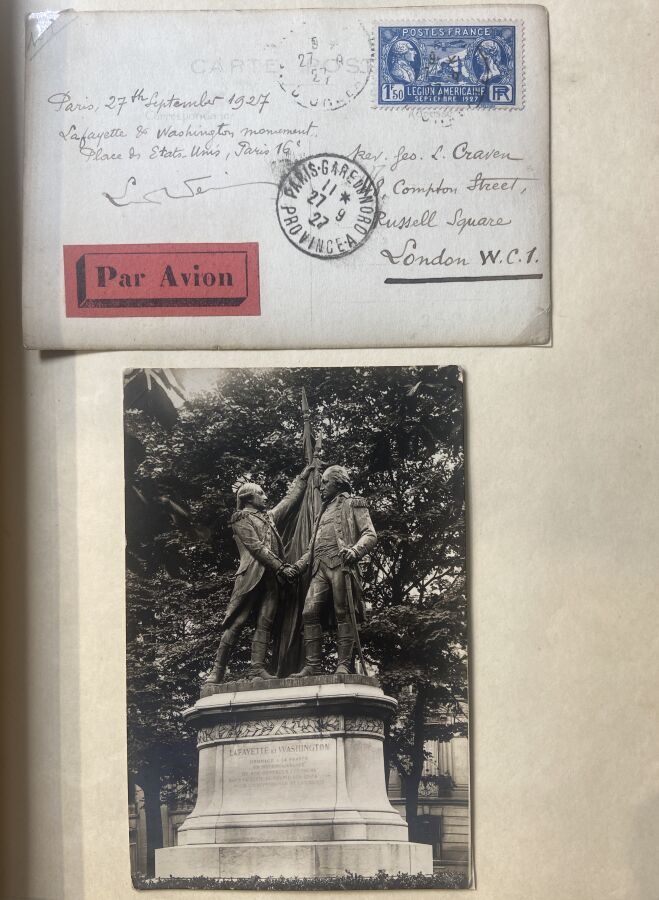 CARTE POST
POSTES·FRANCE
1F50 LEGION AMERICAINE RF
SEPTEMBRE 1927
9
27-9
27
Paris, 27th September 1927
Lafayette & Washington monument.
Place des Etats-Unis, Paris 16e
PARIS-GARE DU NORD
11 *
27 9
27
PROVINCE-A
Rev. Geo. L. Craven
8 Compton Street,
Russell Square
London W.C.1.
Par Avion
LAFAYETTE ET WASHINGTON
HOMMAGE A LA FRANCE